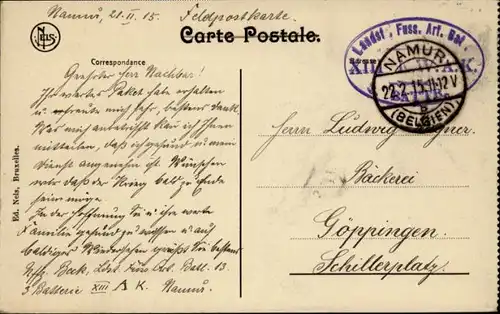 Namur, 21.II.15. Feldpostkarte.
Carte Postale.
Correspondance
Adresse
Landst. Fuss. Art. Bat.
XIII. A.K.
NAMUR
22.2.15.11-12V
b
(BELGIEN)
Geehrter Herr Nachbar!
Ihr wertes Paket habe erhalten
u. erfreute mich sehr, besten Dank!
Was mich anbetrifft kan ich Ihnen
mitteilen, daß ich gesund u. mein
Dienst angenehm ist. Wünschen
wir daß der Krieg bald zu Ende
sein möge.
In der Hoffnung Sie u. ihre werte
Familie gesund zu wissen u. auf
baldiges Wiedersehen grüßt Sie bestens
Uffz. Beck, Ldst. Fuss. Art. Batl. 13.
3 Batterie XIII A. K. Namur.
Herrn Ludwig
Bäckerei
Göppingen.
Schillerplatz.
Ed. Nels, Bruxelles.